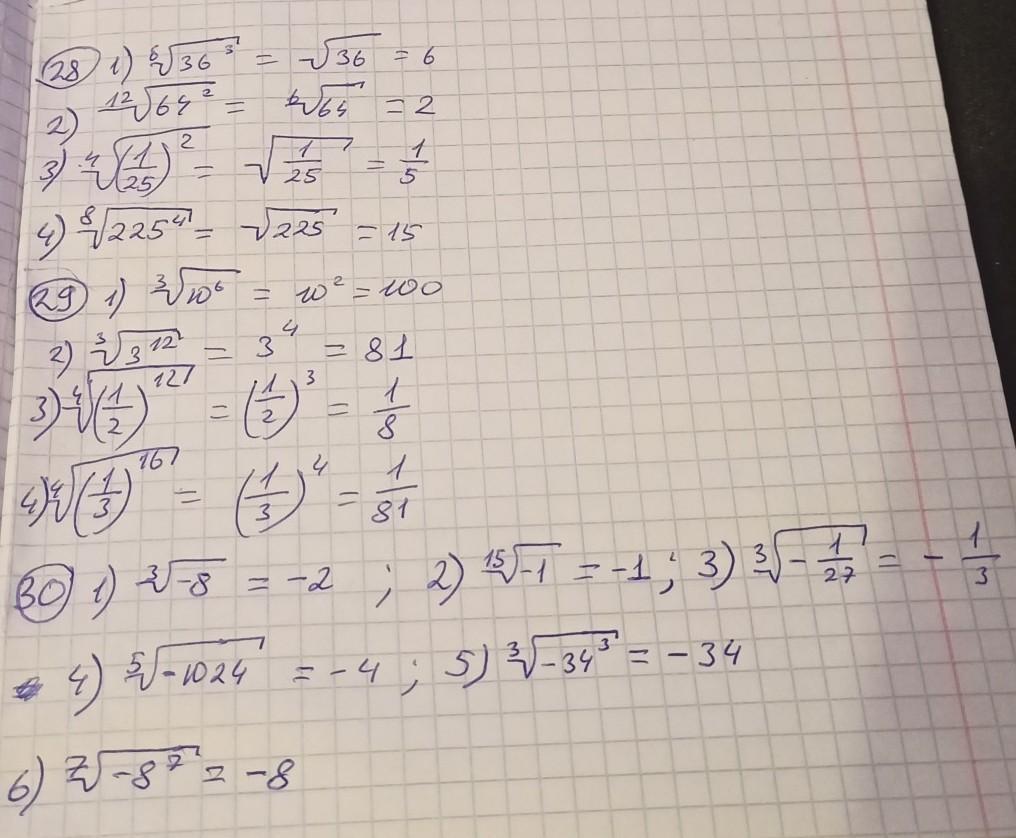 28 1) ⁶√36³ = √36 = 6
2) ¹²√64² = ⁶√64 = 2
3) ⁴√(1/25)² = √1/25 = 1/5
4) ⁸√225⁴ = √225 = 15
29 1) ³√10⁶ = 10² = 100
2) ³√3¹² = 3⁴ = 81
3) ⁴√(1/2)¹² = (1/2)³ = 1/8
4) ⁴√(1/3)¹⁶ = (1/3)⁴ = 1/81
30 1) ³√-8 = -2 ; 2) ¹⁵√-1 = -1 ; 3) ³√-1/27 = -1/3
4) ⁵√-1024 = -4 ; 5) ³√-34³ = -34
6) ⁷√-8⁷ = -8